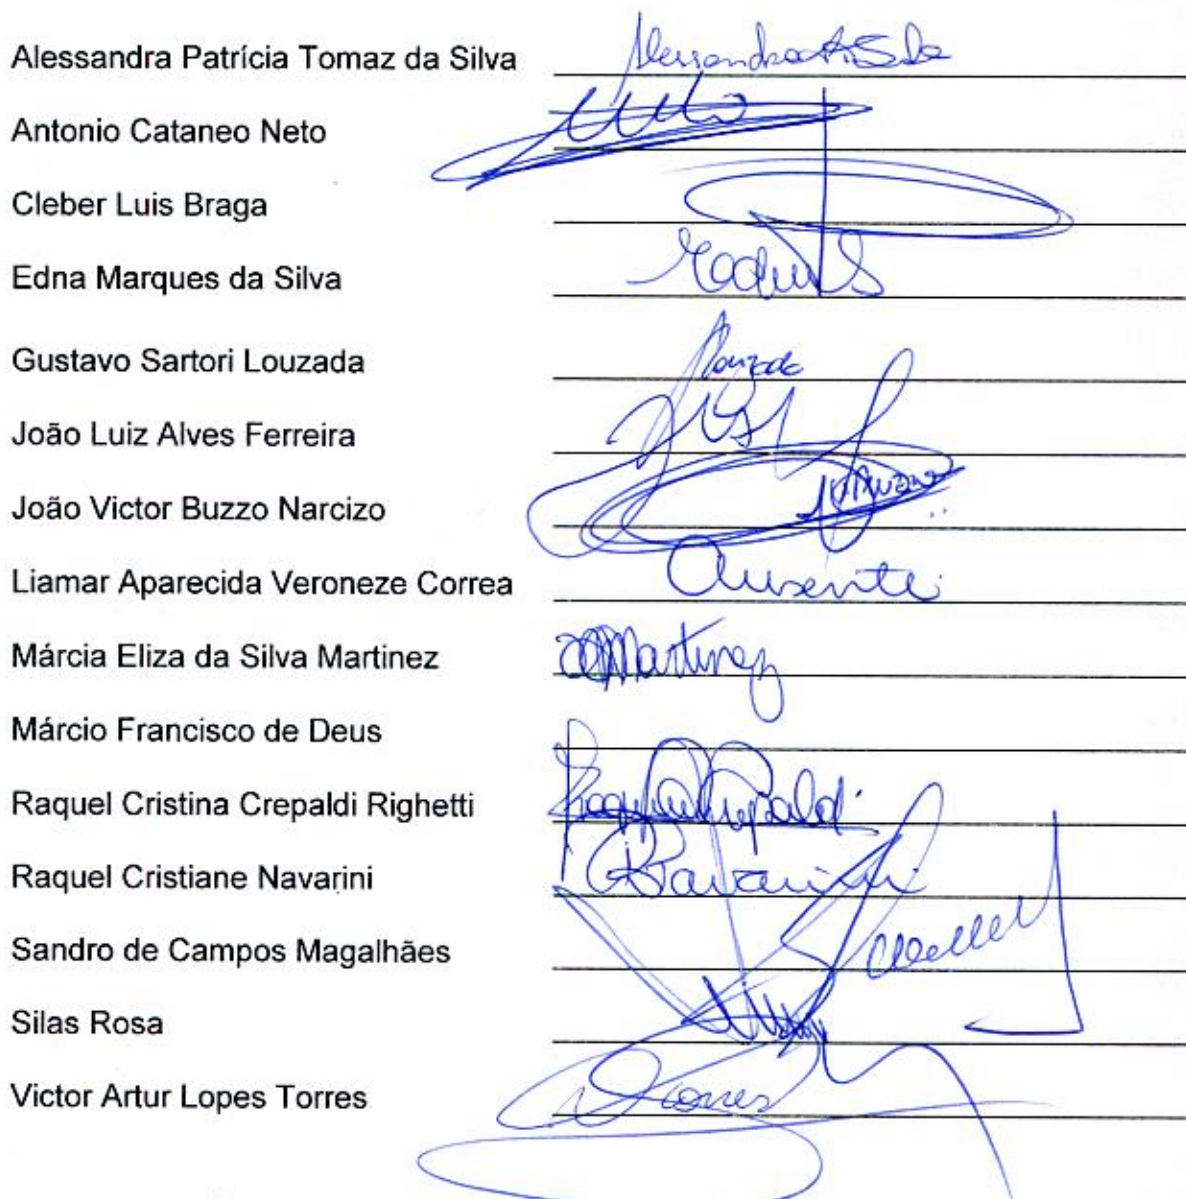 Alessandra Patrícia Tomaz da Silva
Antonio Cataneo Neto
Cleber Luis Braga
Edna Marques da Silva
Gustavo Sartori Louzada Louzada
João Luiz Alves Ferreira
João Victor Buzzo Narcizo
Liamar Aparecida Veroneze Correa Ausente
Márcia Eliza da Silva Martinez Martinez
Márcio Francisco de Deus
Raquel Cristina Crepaldi Righetti Crepaldi
Raquel Cristiane Navarini Navarini
Sandro de Campos Magalhães
Silas Rosa
Victor Artur Lopes Torres Torres